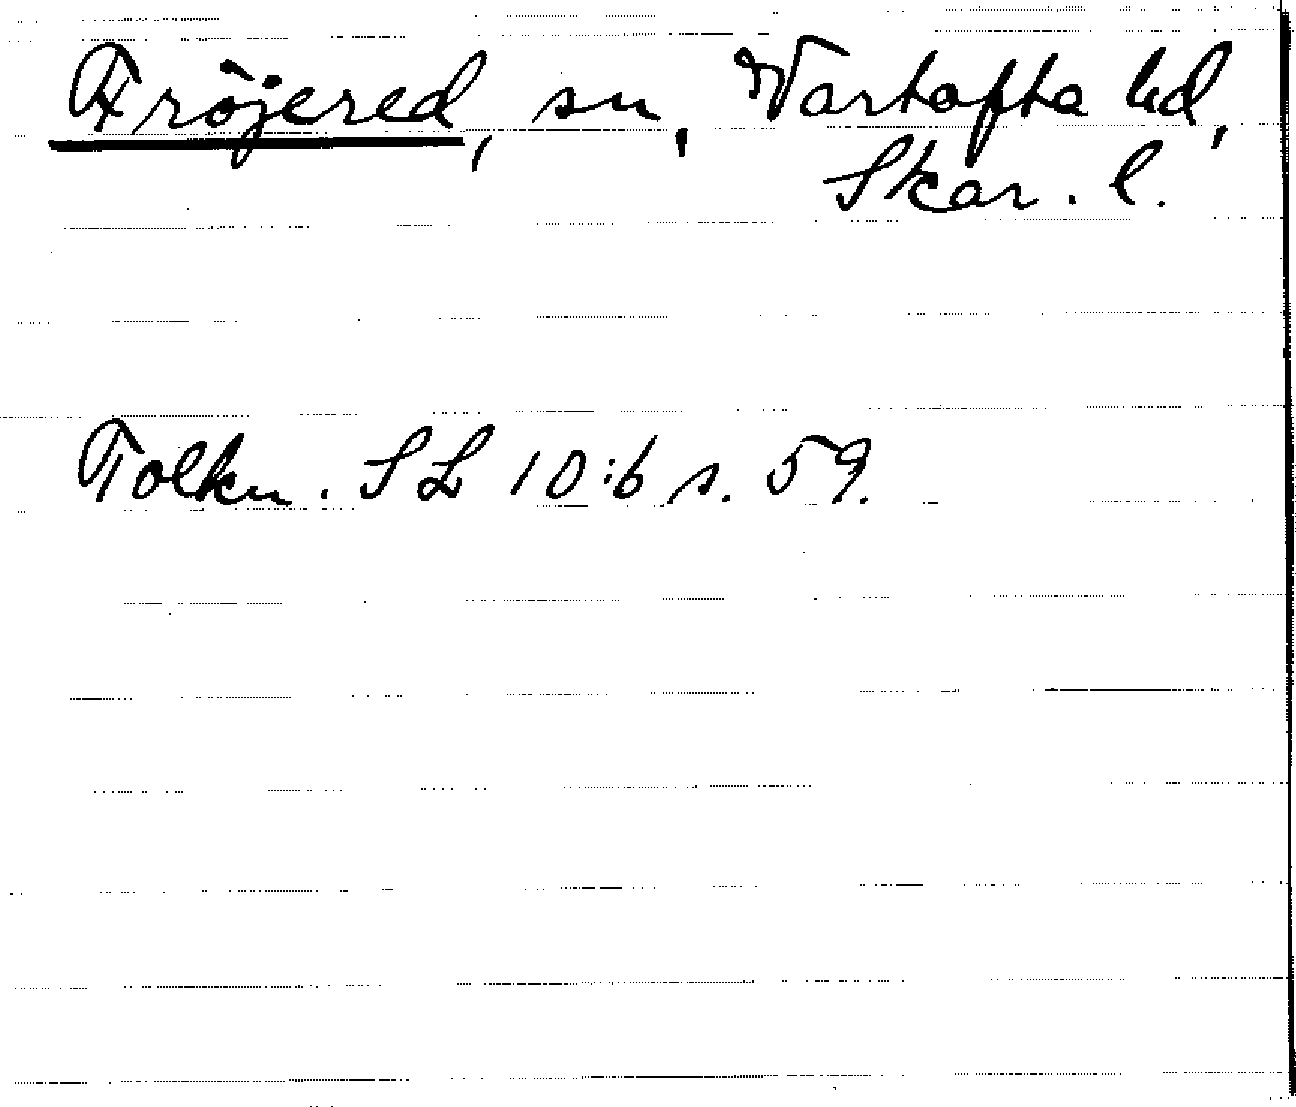 Fröjered, sn, Vartofta hd,
Skar. l.
Tolkn. SL 10:6 s. 59.